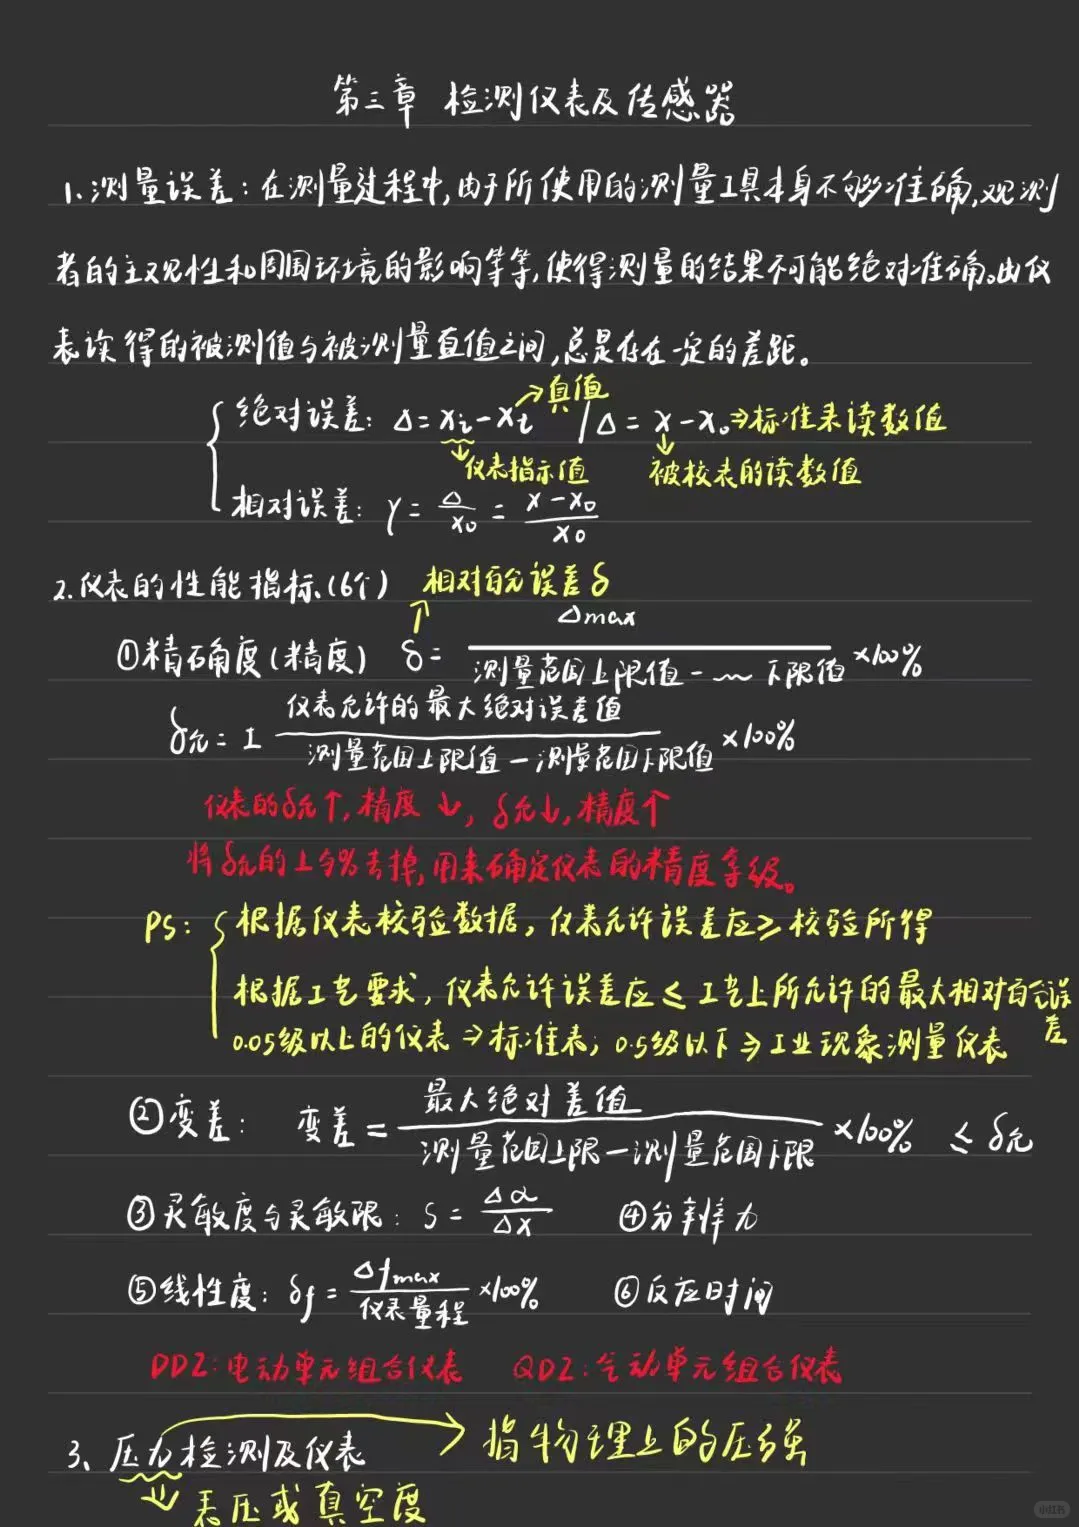 第三章 检测仪表及传感器
1.测量误差:在测量过程中,由于所使用的测量工具本身不够准确,观测
者的主观性和周围环境的影响等等,使得测量的结果不可能绝对准确。由仪
表读得的被测值与被测量真值之间,总是存在一定的差距。
→真值
绝对误差: Δ=xᵢ-xₜ / Δ=x-x₀⇒标准表读数值
↓仪表指示值 ↓被校表的读数值
相对误差: γ=Δ/x₀=(x-x₀)/x₀
2.仪表的性能指标(6个) 相对百分误差δ
①精确度(精度) δ=Δmax/(测量范围上限值-～下限值)×100%
δ允=±仪表允许的最大绝对误差值/(测量范围上限值-测量范围下限值)×100%
仪表的δ允↑,精度↓, δ允↓,精度↑
将δ允的±与%去掉,用来确定仪表的精度等级。
PS: 根据仪表校验数据,仪表允许误差应≥校验所得
根据工艺要求,仪表允许误差应≤工艺上所允许的最大相对百分误
差
0.05级以上的仪表⇒标准表; 0.5级以下⇒工业现象测量仪表
②变差: 变差=最大绝对差值/(测量范围上限-测量范围下限)×100% ≤δ允
③灵敏度与灵敏限: S=Δα/Δx ④分辨力
⑤线性度: δf=Δfmax/仪表量程×100% ⑥反应时间
DDZ:电动单元组合仪表 QDZ:气动单元组合仪表
3、压力检测及仪表 → 指物理上的压强
↓表压或真空度
小红书